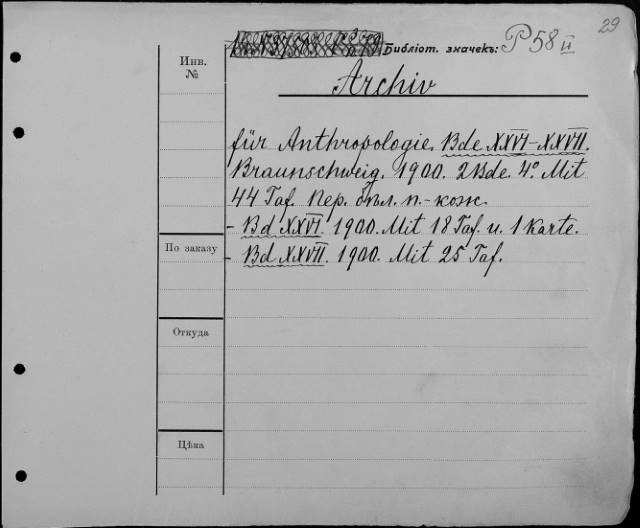 29
Библіот. значекъ: P 58 II
Инв.
№
Archiv
für Anthropologie. Bde XXVI-XXVII.
Braunschweig. 1900. 2 Bde. 4º. Mit
44 Taf. Пер. опл. п.-кож.
- Bd XXVI. 1900. Mit 18 Taf. u. 1 Karte.
По заказу
- Bd XXVII. 1900. Mit 25 Taf.
Откуда
Цѣна